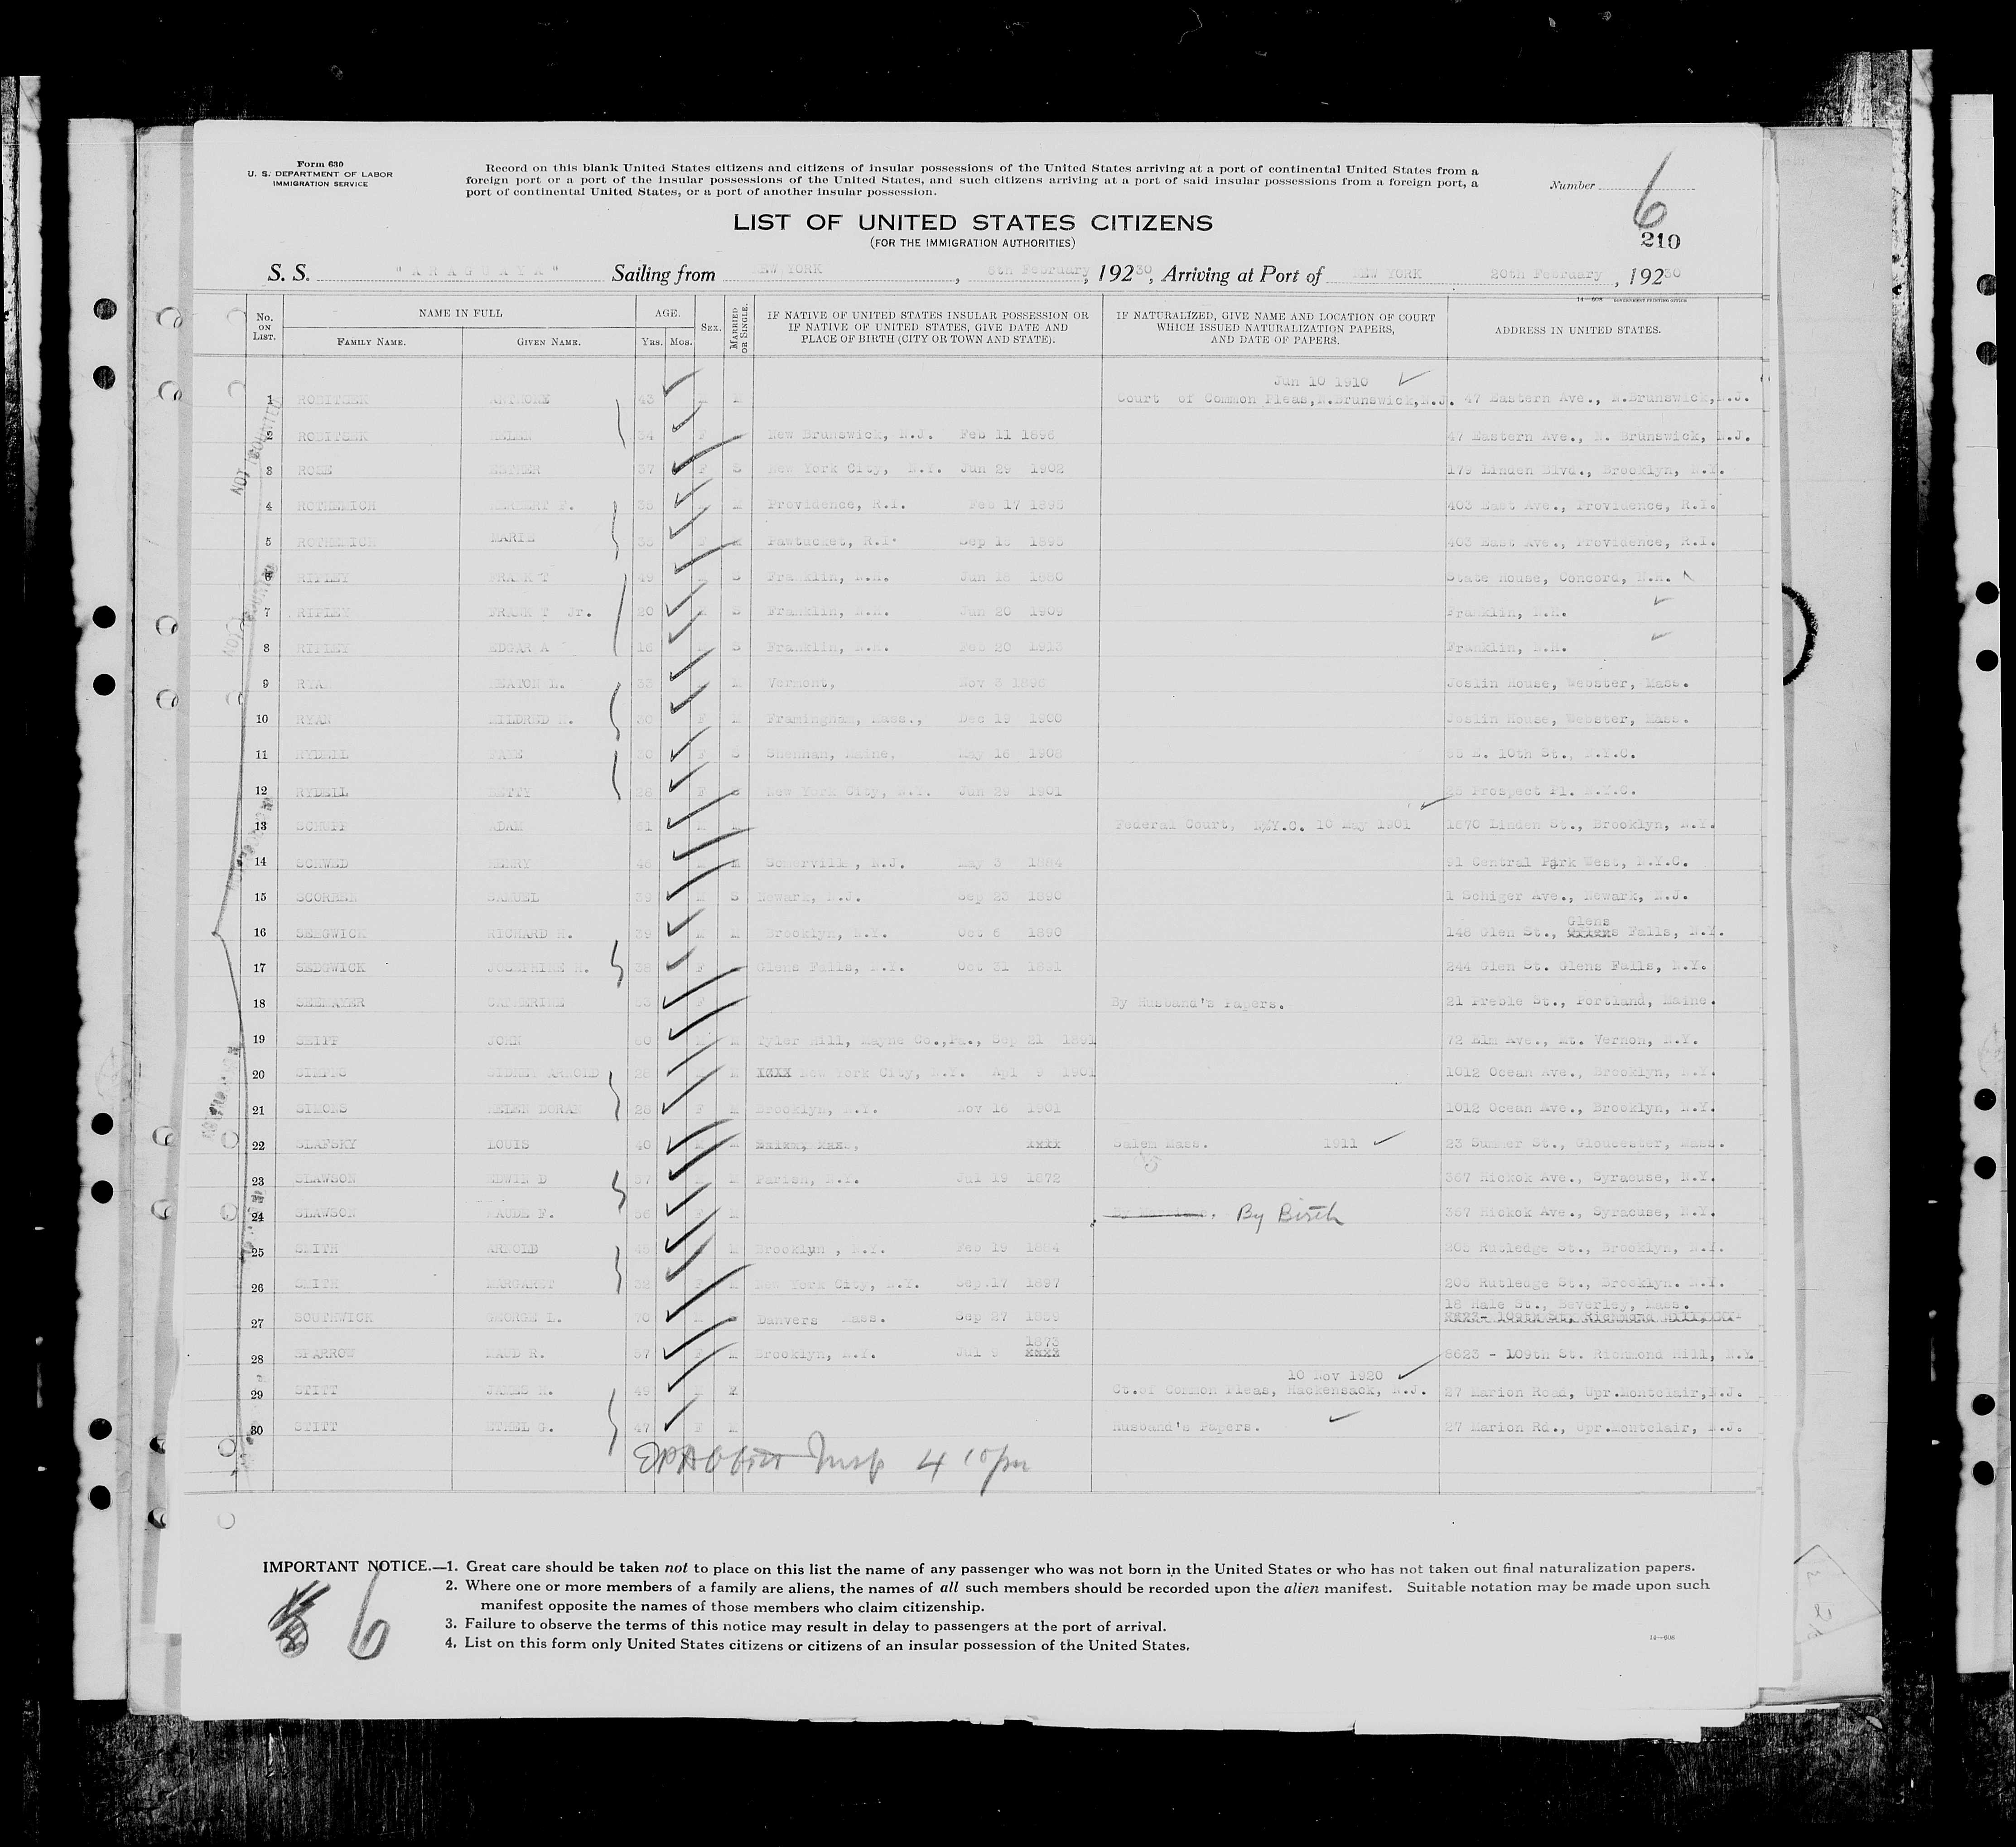 Form 630
U. S. DEPARTMENT OF LABOR
IMMIGRATION SERVICE
Record on this blank United States citizens and citizens of insular possessions of the United States arriving at a port of continental United States from a
foreign port or a port of the insular possessions of the United States, and such citizens arriving at a port of said insular possessions from a foreign port, a
port of continental United States, or a port of another insular possession.
Number 6
LIST OF UNITED STATES CITIZENS
(FOR THE IMMIGRATION AUTHORITIES)
210
S. S. "ARAGUAYA" Sailing from NEW YORK, 8th February, 19230, Arriving at Port of NEW YORK 20th February, 19230
14—608 GOVERNMENT PRINTING OFFICE
No. ON LIST. NAME IN FULL FAMILY NAME. GIVEN NAME. AGE. YRS. MOS. SEX. MARRIED OR SINGLE. IF NATIVE OF UNITED STATES INSULAR POSSESSION OR IF NATIVE OF UNITED STATES, GIVE DATE AND PLACE OF BIRTH (CITY OR TOWN AND STATE). IF NATURALIZED, GIVE NAME AND LOCATION OF COURT WHICH ISSUED NATURALIZATION PAPERS, AND DATE OF PAPERS. ADDRESS IN UNITED STATES.
Jun 10 1910
1 ROBITSEK 43 Court of Common Pleas, N.Brunswick, N.J. 47 Eastern Ave., N.Brunswick, N.J.
2 ROBITSEK HELEN 34 F New Brunswick, N.J. Feb 11 47 Eastern Ave., N. Brunswick, N.J.
3 ROSE ESTHER 37 F S New York City, N.Y. Jun 29 1902 179 Linden Blvd., Brooklyn, N.Y.
4 ROTHEMICH HERBERT F. M Providence, R.I. Feb 17 403 East Ave., Providence, R.I.
5 ROTHEMICH MARIE F Pawtucket, R.I. Sep 403 East Ave., Providence, R.I.
6 RIPLEY FRANK T 49 S Franklin, N.H. Jun 18 1880 State House, Concord, N.H.
7 RIPLEY FRANK T Jr. 20 S Franklin, N.H. Jun 20 1909 Franklin, N.H.
8 RIPLEY EDGAR A 16 S Franklin, N.H. Feb 20 1913 Franklin, N.H.
9 RYAN HEATON L. 33 M Vermont, Nov 3 1896 Joslin House, Webster, Mass.
10 RYAN MILDRED 30 F M Framingham, Mass., Dec 19 1900 Joslin House, Webster, Mass.
11 RYDELL FAYE 30 F S Maine, May 16 E. 10th St., N.Y.C.
12 RYDELL BETTY 28 F S New York City, N.Y. Jun 29 1901 Prospect Pl. N.Y.C.
13 SCHUPP ADAM 61 M M Federal Court, N.Y.C. 10 May 1901 1870 Linden St., Brooklyn, N.Y.
14 SCHWED HENRY M Somerville, N.J. May 3 1884 91 Central Park West, N.Y.C.
15 SAMUEL 39 M S Newark, N.J. Sep 23 1890 1 Schiger Ave., Newark, N.J.
Glens
16 SEDGWICK RICHARD H. 39 M M Brooklyn, N.Y. Oct 6 1890 148 Glen St., Falls, N.Y.
17 SEDGWICK JOSEPHINE H. 38 F Glens Falls, N.Y. Oct 31 1891 244 Glen St. Glens Falls, N.Y.
18 SEEMAYER CATHERINE 53 F By Husband's Papers. 21 Preble St., Portland, Maine.
19 SEIPP JOHN M M Tyler Hill, Wayne Co., Pa., Sep 21 72 Elm Ave., Mt. Vernon, N.Y.
20 SIDNEY ARNOLD 28 M M XXXX New York City, N.Y. Apl 9 1901 1012 Ocean Ave., Brooklyn, N.Y.
21 SIMONS HELEN DORAN 28 F M Brooklyn, N.Y. Nov 18 1901 1012 Ocean Ave., Brooklyn, N.Y.
22 SLAFSKY LOUIS 40 M M xxxx Salem Mass. 1911 23 Summer St., Gloucester, Mass.
23 SLAWSON EDWIN D 57 M M Parish, N.Y. Jul 19 1872 367 Hickok Ave., Syracuse, N.Y.
24 SLAWSON MAUDE F. 56 F M By Birth 367 Hickok Ave., Syracuse, N.Y.
25 SMITH ARNOLD M Brooklyn, N.Y. Feb 19 1884 205 Rutledge St., Brooklyn, N.Y.
26 SMITH MARGARET 32 F M New York City, N.Y. Sep.17 1897 205 Rutledge St., Brooklyn. N.Y.
18 Hale St., Beverley, Mass.
27 SOUTHWICK GEORGE L. 70 M Danvers Mass. Sep 27 1859
1873
28 SPARROW MAUD R. 57 F M Brooklyn, N.Y. Jul xxxx 8623 - 109th St. Richmond Hill, N.Y.
10 Nov 1920
29 STITT JAMES H. 49 M M Ct.of Common Pleas, Hackensack, N.J. 27 Marion Road, Upr.Montclair, N.J.
30 STITT ETHEL G. 47 F M Husband's Papers. 27 Marion Rd., Upr.Montclair, N.J.
Insp 4 10 pm
NOT COUNTED
IMPORTANT NOTICE.—1. Great care should be taken not to place on this list the name of any passenger who was not born in the United States or who has not taken out final naturalization papers.
2. Where one or more members of a family are aliens, the names of all such members should be recorded upon the alien manifest. Suitable notation may be made upon such
manifest opposite the names of those members who claim citizenship.
3. Failure to observe the terms of this notice may result in delay to passengers at the port of arrival.
4. List on this form only United States citizens or citizens of an insular possession of the United States.
6
14—608